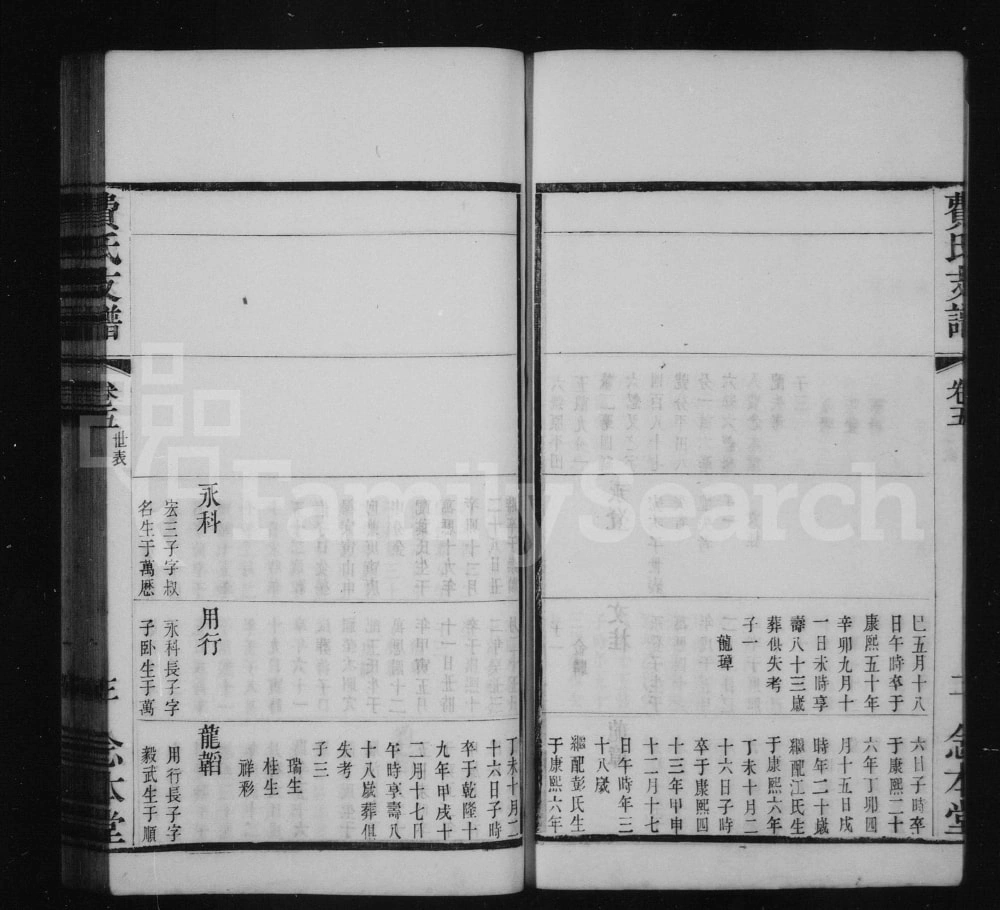 費氏支譜
卷五
二
念本堂
巳五月十八
日午時卒于
康熙五十年
辛卯九月十
一日未時享
壽八十三歲
葬俱失考
子一
龍璋
六日子時卒
于康熙二十
六年丁卯四
月十五日戌
時年二十歲
繼配江氏生
于康熙六年
丁未十月二
十六日子時
卒于康熙四
十三年甲申
十二月十七
日午時年三
十八歲
繼配彭氏生
于康熙六年
丁未十月二
十六日子時
卒于乾隆十
九年甲戌十
二月十七日
午時享壽八
十八歲葬俱
失考
子三
瑞生
桂生
祥彩
永科
宏三子字叔
名生于萬曆
用行
永科長子字
子卧生于萬
龍韜
用行長子字
毅武生于順
費氏支譜
卷五
世表
三
念本堂
FamilySearch